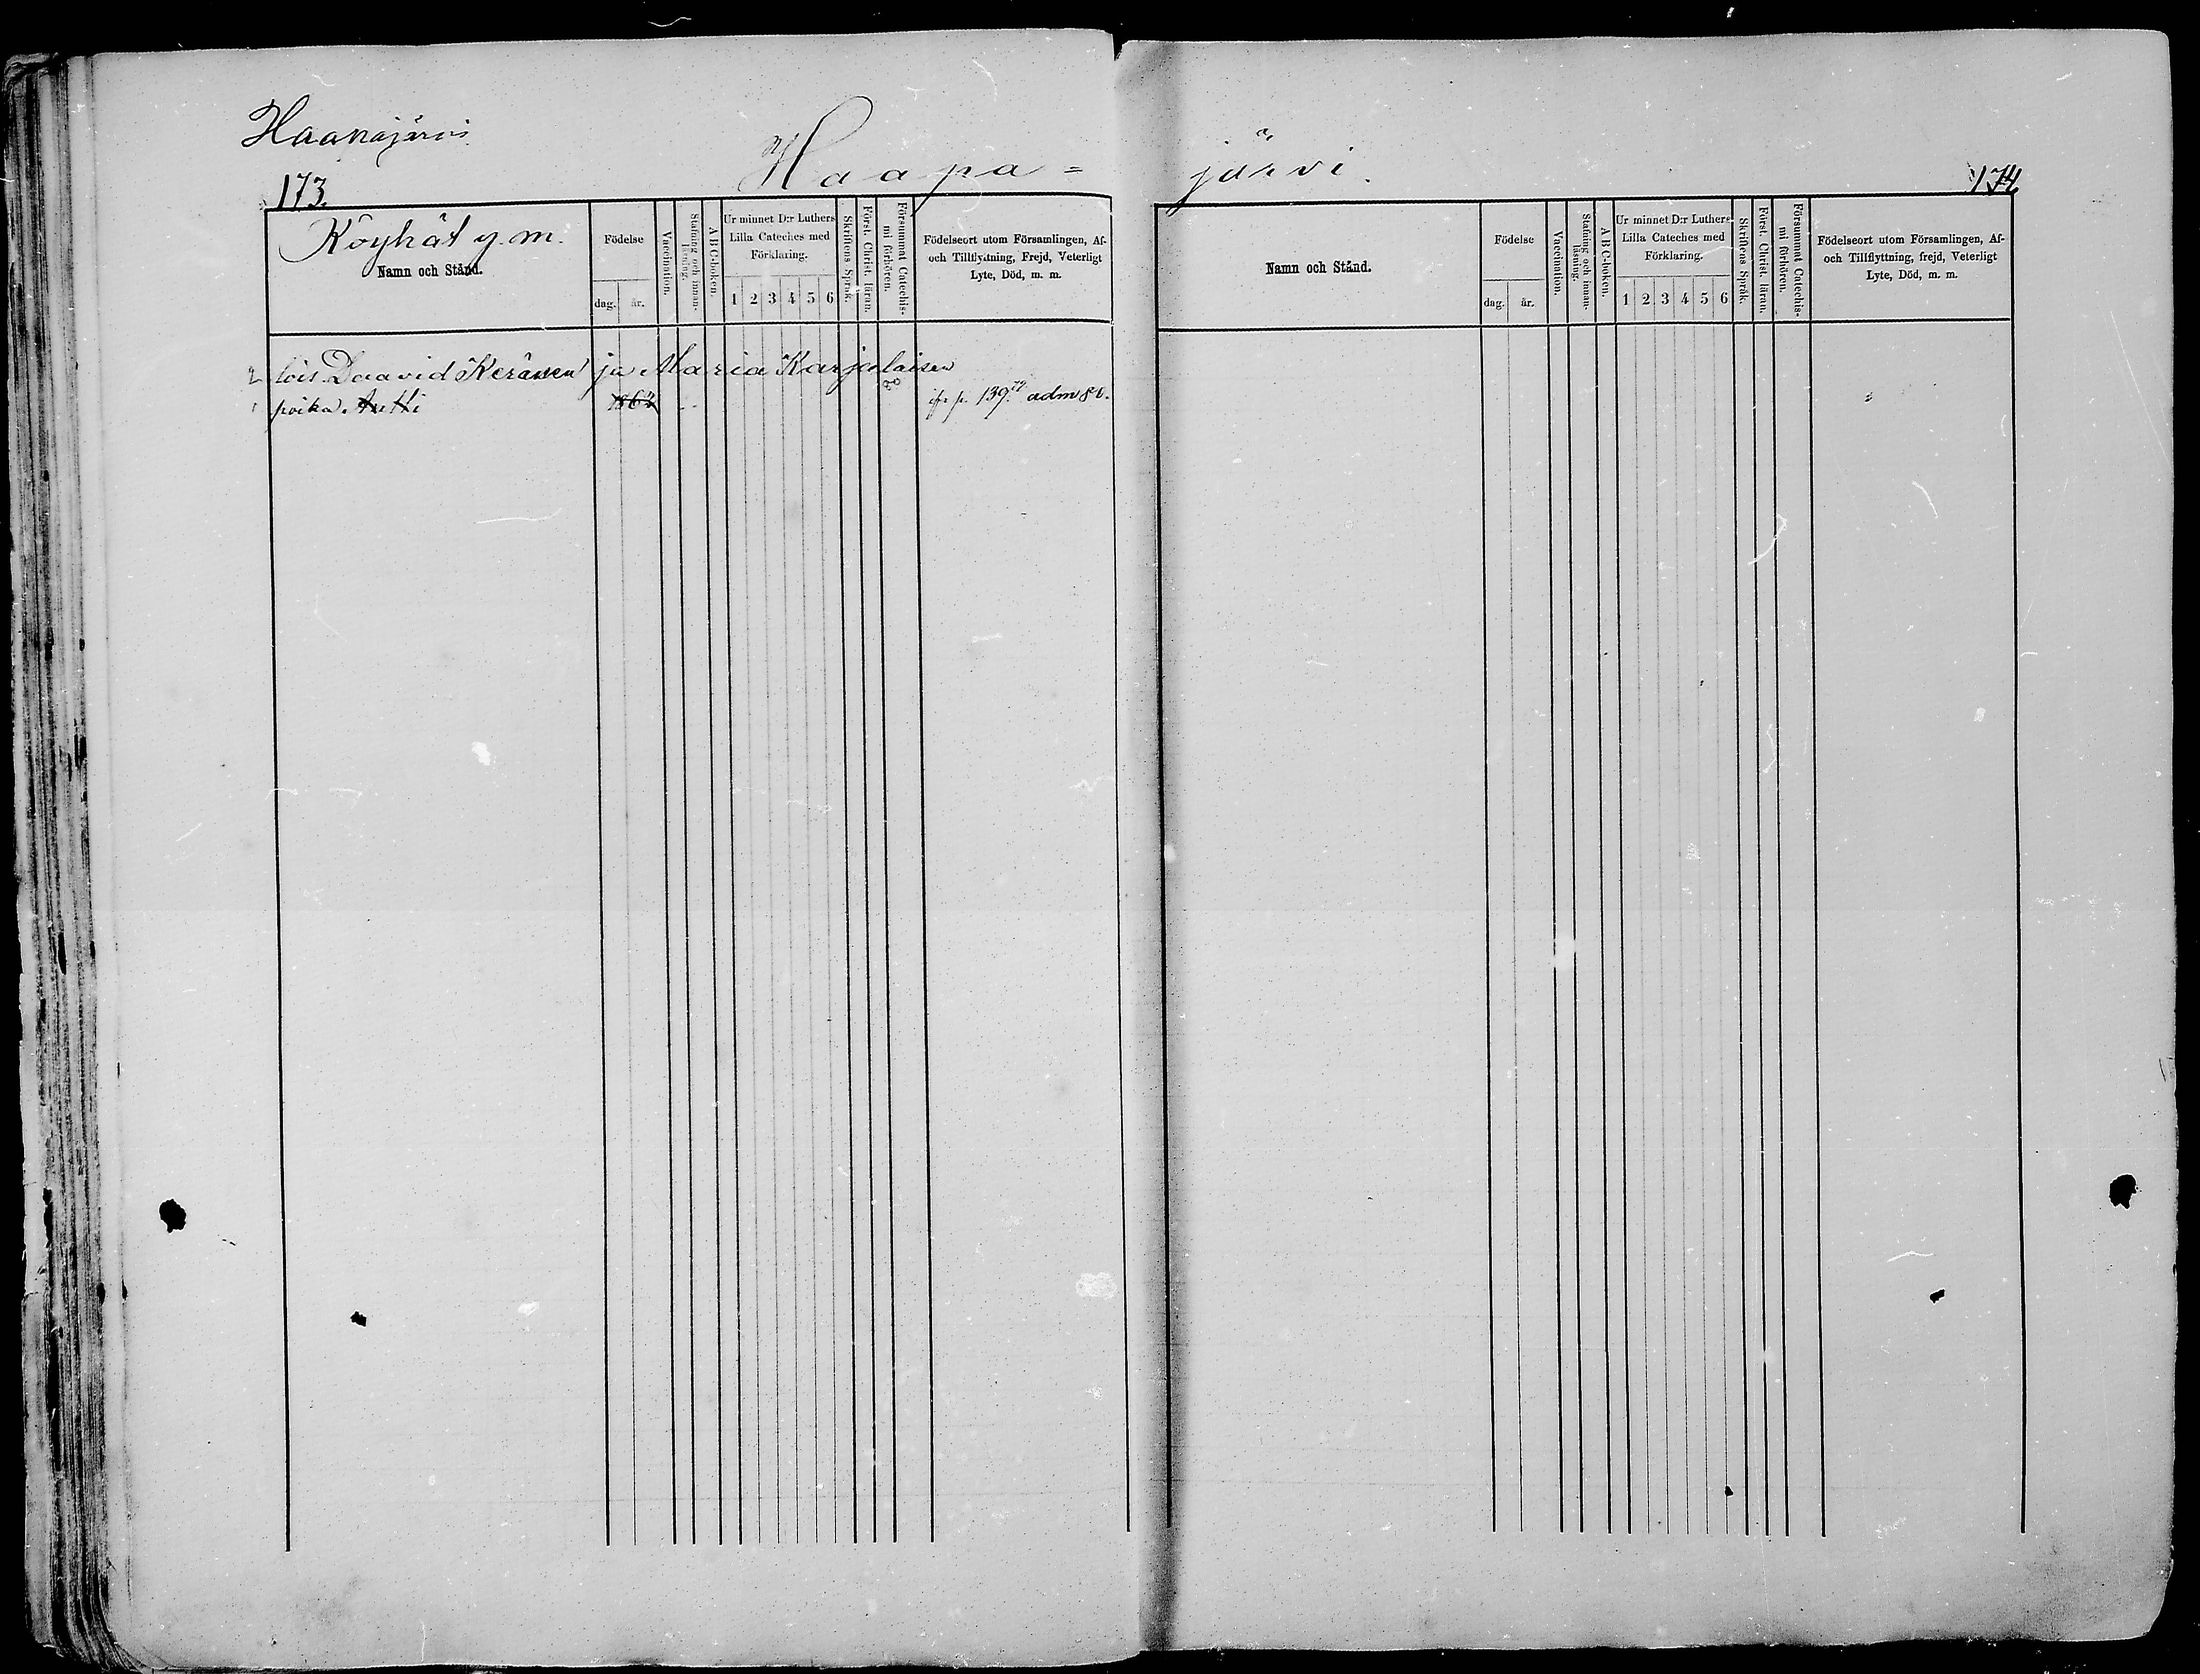 Haapajärvi.
Haapa=
173.
Köyhät y. m.
Namn och Stånd.
Födelse
dag.
år.
Vaccination.
Stafning och innanläsning.
A B C-boken.
Ur minnet D:r Luthers
Lilla Cateches med
Förklaring.
1 2 3 4 5 6
Skriftens Språk.
Först. Christ. läran.
Försummat Catechismi förhören.
Födelseort utom Församlingen, Af-
och Tillflyttning, Frejd, Veterligt
Lyte, Död, m. m.
2 lois Daavid Keränen ja Maria Karjalaisen
1 poika Antti 186 p. 139. adm 80.
järvi.
174.
Namn och Stånd.
Födelse
dag.
år.
Vaccination.
Stafning och innanläsning.
A B C-boken.
Ur minnet D:r Luthers
Lilla Cateches med
Förklaring.
1 2 3 4 5 6
Skriftens Språk.
Först. Christ. läran.
Försummat Catechismi förhören.
Födelseort utom Församlingen, Af-
och Tillflyttning, frejd, Veterligt
Lyte, Död, m. m.